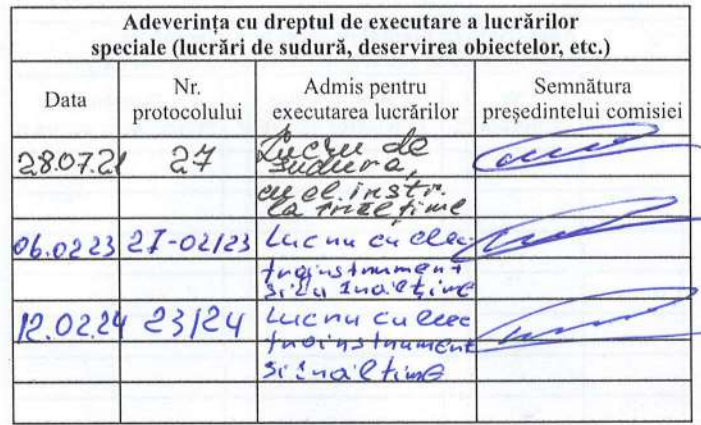 Adeverința cu dreptul de executare a lucrărilor
speciale (lucrări de sudură, deservirea obiectelor, etc.)
Data Nr. protocolului Admis pentru executarea lucrărilor Semnătura președintelui comisiei
28.07.21 27 Lucru de
sudura,
cu el. instr.
la înălțime
06.02.23 27-02/23 Lucru cu elec
troinstrument
si la înălțime
12.02.24 23/24 Lucru cu elec
troinstrument
si înălțime